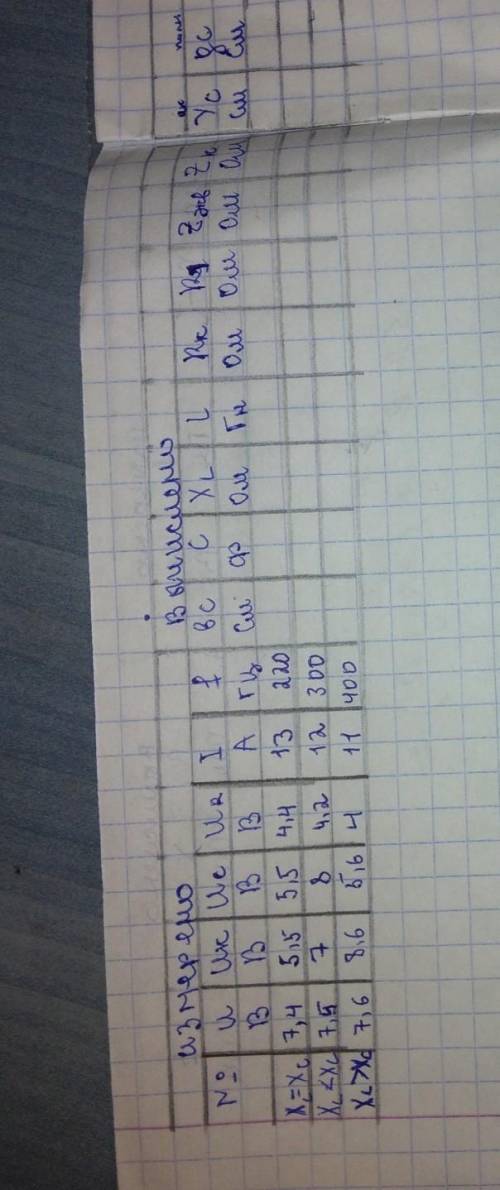 измерено Вычислено
№ U Uк Uс UR I f вс C XL L Rк Rд Zэкв Zк Yс вс
В В В В А Гц См Ф Ом Гн Ом Ом Ом Ом См См
XL=XC 7,4 5,5 5,5 4,4 13 220
XL<XC 7,5 7 8 4,2 12 300
XL>XC 7,6 8,6 5,6 4 11 400